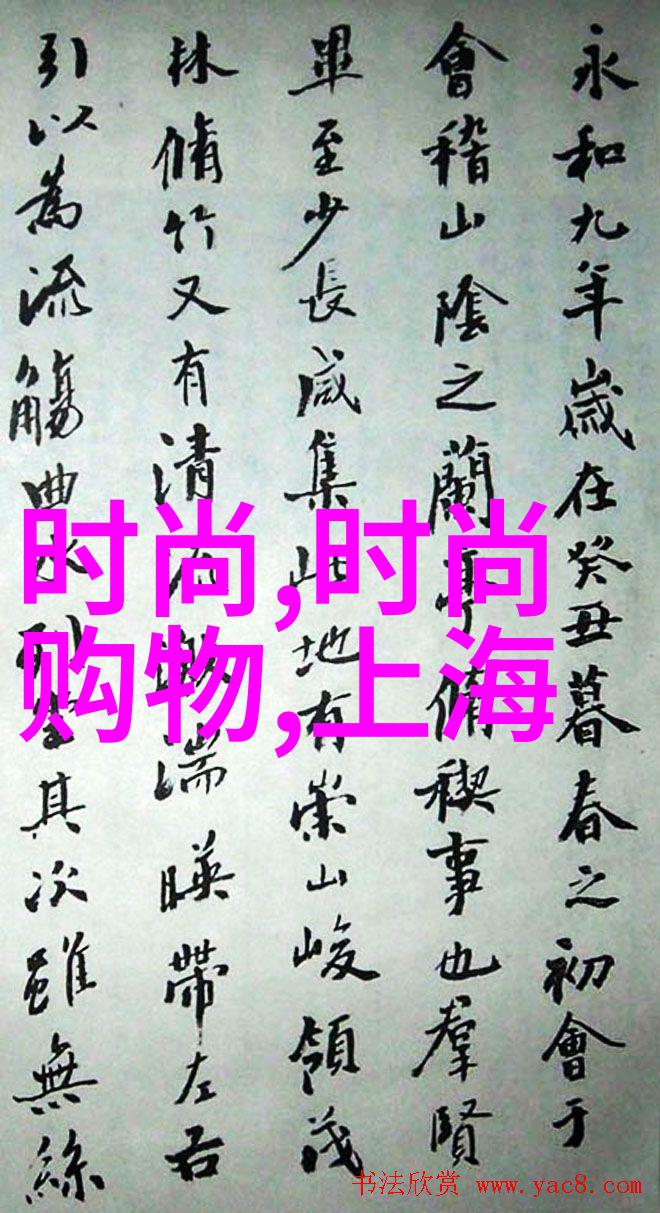 永和九年歲在癸丑暮春之初會于
會稽山陰之蘭亭脩稧事也羣賢
畢至少長咸集此地有崇山峻領茂
林脩竹又有清流激湍暎帶左右
引以為流觴曲水列坐其次雖無絲
时尚,时尚
购物,上海
书法欣赏 www.yac8.com